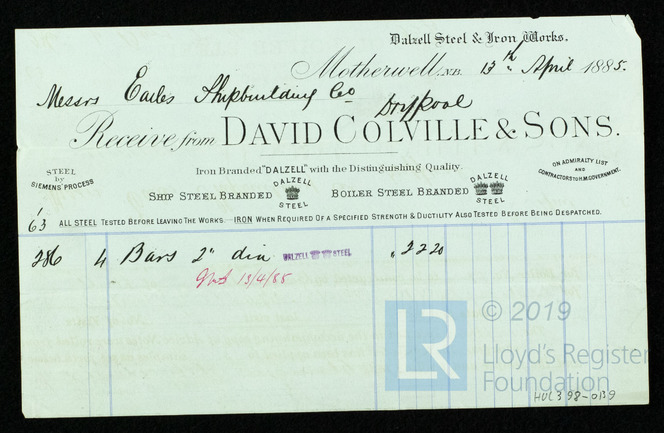 Dalzell Steel & Iron Works.
Motherwell, N.B. 13th April 1885.
Messrs Earles Shipbuilding Co Drypool
Receive from DAVID COLVILLE & SONS.
Iron Branded "DALZELL" with the Distinguishing Quality.
STEEL by SIEMENS' PROCESS
SHIP STEEL BRANDED DALZELL STEEL
BOILER STEEL BRANDED DALZELL STEEL
ON ADMIRALTY LIST AND CONTRACTORS TO H.M. GOVERNMENT.
63 ALL STEEL TESTED BEFORE LEAVING THE WORKS. IRON WHEN REQUIRED OF A SPECIFIED STRENGTH & DUCTILITY ALSO TESTED BEFORE BEING DESPATCHED.
286 4 Bars 2" dia DALZELL STEEL " 2220
13/4/85
© 2019
LR
Lloyd's Register
Foundation
HUL398-0139